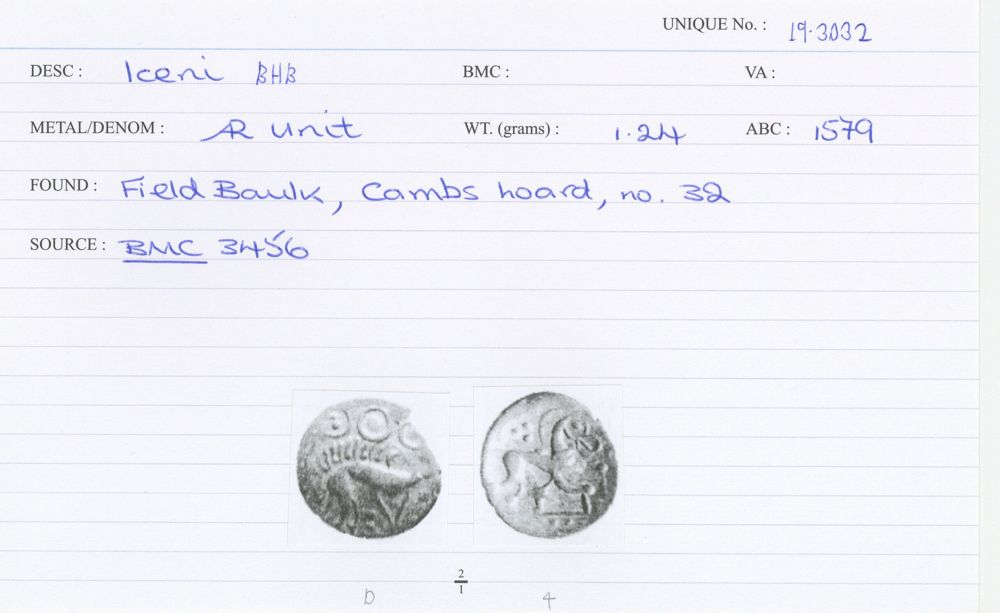 UNIQUE No. : 19.3032
DESC : Iceni BHB BMC : VA :
METAL/DENOM : AR unit WT. (grams) : 1.24 ABC : 1579
FOUND : Field Baulk, Cambs hoard, no. 32
SOURCE : BMC 3456
2/1
b 4